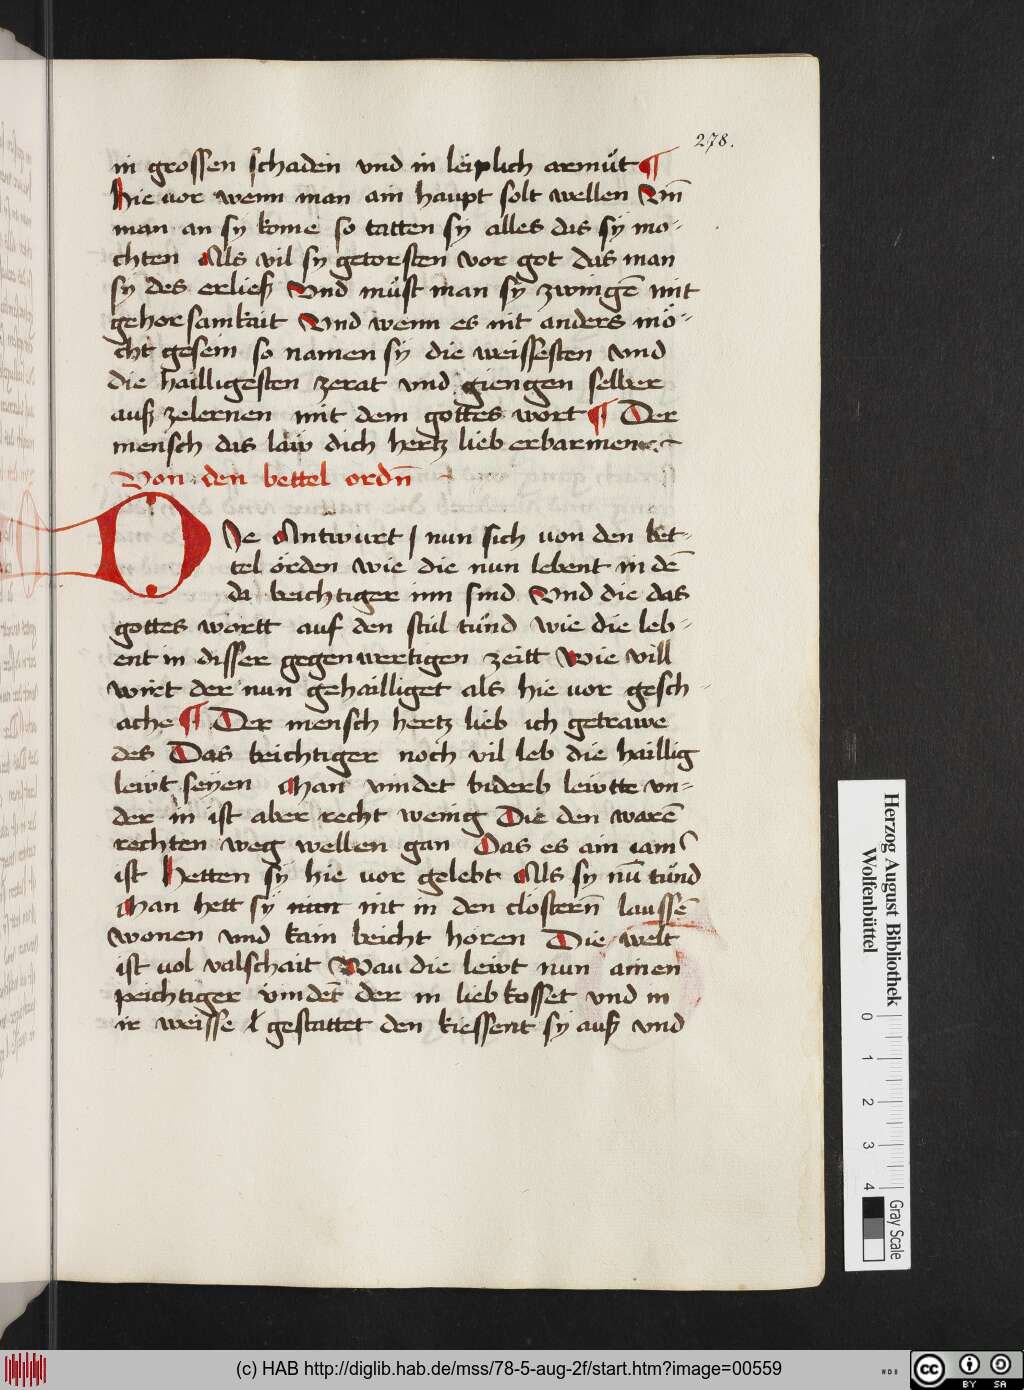 278.
in grossen schaden vnd in leiplich armůt ¶
Hie vor wenn man ain haupt solt wellen Vm̄
man an sy kome so tatten sy alles das sy mo-
chten Als vil sy getorsten vor got das man
sy des erließ Vnd můst man sy zwingē mit
gehorsamkait Vnd wenn es nit anders mö-
cht gesein so namen sy die weissesten vnd
die hailligesten zerat vnd giengen selber
auß zelernen mit dem gottes wort ¶ Der
mensch das law dich hertz lieb erbarmen
Von den bettel ordn̄
DJe Antwurt J nun sich von den bet-
tel örden wie die nun lebent in dē
da beichtiger inn sind Vnd die das
gottes wortt auf den stůl tůnd wie die leb-
ent in disser gegenwertigen zeitt Wie vill
wirt der nun gehailliget als hie vor gesch-
ache ¶ Der mensch hertz lieb ich getrawe
des Das beichtiger noch vil leb die haillig
lewt seyen Man vindet biderb lewtte vn-
der in ist aber recht wenig Die den warē
rechten weg wellen gan Das es ain iam̄
ist Hetten sy hie vor gelebt Als sy nū tůnd
Man hett sy nit in den clostern̄ laussē
wonen vnd kain beicht horen Die welt
ist vol valschait Wau die lewt nun ainen
peichtiger vindet der in liebkosset vnd in
ir weisse ł gestattet den kiessent sy auß vnd
Herzog August Bibliothek
Wolfenbüttel
0 1 2 3 4
Gray Scale
(c) HAB http://diglib.hab.de/mss/78-5-aug-2f/start.htm?image=00559
cc BY SA